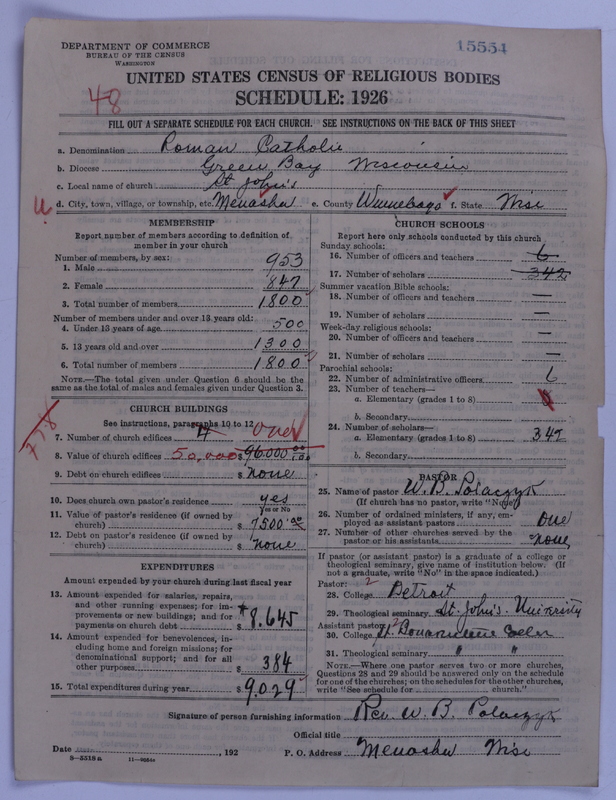 DEPARTMENT OF COMMERCE
BUREAU OF THE CENSUS
WASHINGTON
15554
UNITED STATES CENSUS OF RELIGIOUS BODIES
48
SCHEDULE: 1926
FILL OUT A SEPARATE SCHEDULE FOR EACH CHURCH. SEE INSTRUCTIONS ON THE BACK OF THIS SHEET
a. Denomination Roman Catholic
b. Diocese Green Bay Wisconsin
c. Local name of church St John's
d. City, town, village, or township, etc. Menasha e. County Winnebago f. State Wis
MEMBERSHIP
Report number of members according to definition of
member in your church
Number of members, by sex:
1. Male 953
2. Female 847
3. Total number of members 1800
Number of members under and over 13 years old:
4. Under 13 years of age 500
5. 13 years old and over 1300
6. Total number of members 1800
NOTE.—The total given under Question 6 should be the
same as the total of males and females given under Question 3.
CHURCH BUILDINGS
See instructions, paragraphs 10 to 12
7. Number of church edifices 4 one
8. Value of church edifices 50,000 $ 96000
9. Debt on church edifices $ none
10. Does church own pastor's residence yes
Yes or No
11. Value of pastor's residence (if owned by
church) $ 7500.00
12. Debt on pastor's residence (if owned by
church) $ none
EXPENDITURES
Amount expended by your church during last fiscal year
13. Amount expended for salaries, repairs,
and other running expenses; for im-
provements or new buildings; and for
payments on church debt $ 8.645
14. Amount expended for benevolences, in-
cluding home and foreign missions; for
denominational support; and for all
other purposes $ 384
15. Total expenditures during year $ 9029
CHURCH SCHOOLS
Report here only schools conducted by this church
Sunday schools:
16. Number of officers and teachers 6
17. Number of scholars 342
Summer vacation Bible schools:
18. Number of officers and teachers —
19. Number of scholars —
Week-day religious schools:
20. Number of officers and teachers —
21. Number of scholars —
Parochial schools:
22. Number of administrative officers 6
23. Number of teachers—
a. Elementary (grades 1 to 8)
b. Secondary
24. Number of scholars—
a. Elementary (grades 1 to 8) 342
b. Secondary
PASTOR
25. Name of pastor W. B. Polaczyk
(If church has no pastor, write "None")
26. Number of ordained ministers, if any, em-
ployed as assistant pastors one
27. Number of other churches served by the
pastor or his assistants none
If pastor (or assistant pastor) is a graduate of a college or
theological seminary, give name of institution below. (If
not a graduate, write "No" in the space indicated.)
Pastor: 2
28. College Detroit
29. Theological seminary St. John's University
Assistant pastor: 2
30. College St.
31. Theological seminary " "
NOTE.—Where one pastor serves two or more churches,
Questions 28 and 29 should be answered only on the schedule
for one of the churches; on the schedules for the other churches,
write "See schedule for church."
Signature of person furnishing information Rev. W. B. Polaczyk
Official title
Date , 192 P. O. Address Menasha Wis
8—5518a 11—9054a